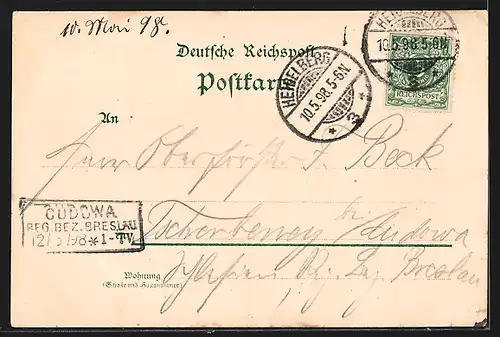 10. Mai 98.
HEIDELBERG
10.5.98.5-6N.
* 3 *
REICHSPOST
Deutsche Reichspost
Postkarte
HEIDELBERG
10.5.98.5-6N.
* 3 *
An
Herrn Oberförster F. Beck
Tscherbeney bei Cudowa
CUDOWA
REG. BEZ. BRESLAU
12/5/98*1-
Schlesien Rg. Bez. Breslau
Wohnung
(Straße und Hausnummer)